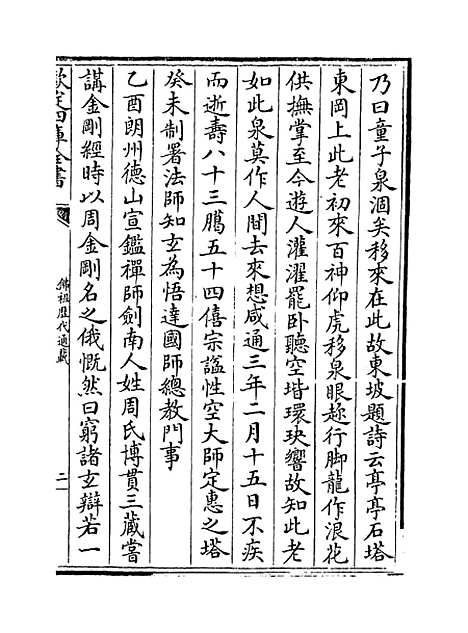 乃曰童子泉涸矣移來在此故東坡題詩云亭亭石塔
東岡上此老初來百神仰虎移泉眼趂行脚龍作浪花
供撫掌至今遊人灌濯罷卧聽空堦環玦響故知此老
如此泉莫作人間去來想咸通三年二月十五日不疾
而逝壽八十三臈五十四僖宗諡性空大師定惠之塔
癸未制署法師知玄為悟達國師總教門事
乙酉朗州德山宣鑑禪師劍南人姓周氏博貫三藏嘗
講金剛經時以周金剛名之俄慨然曰窮諸玄辯若一
欽定四庫全書
佛祖歷代通載
二